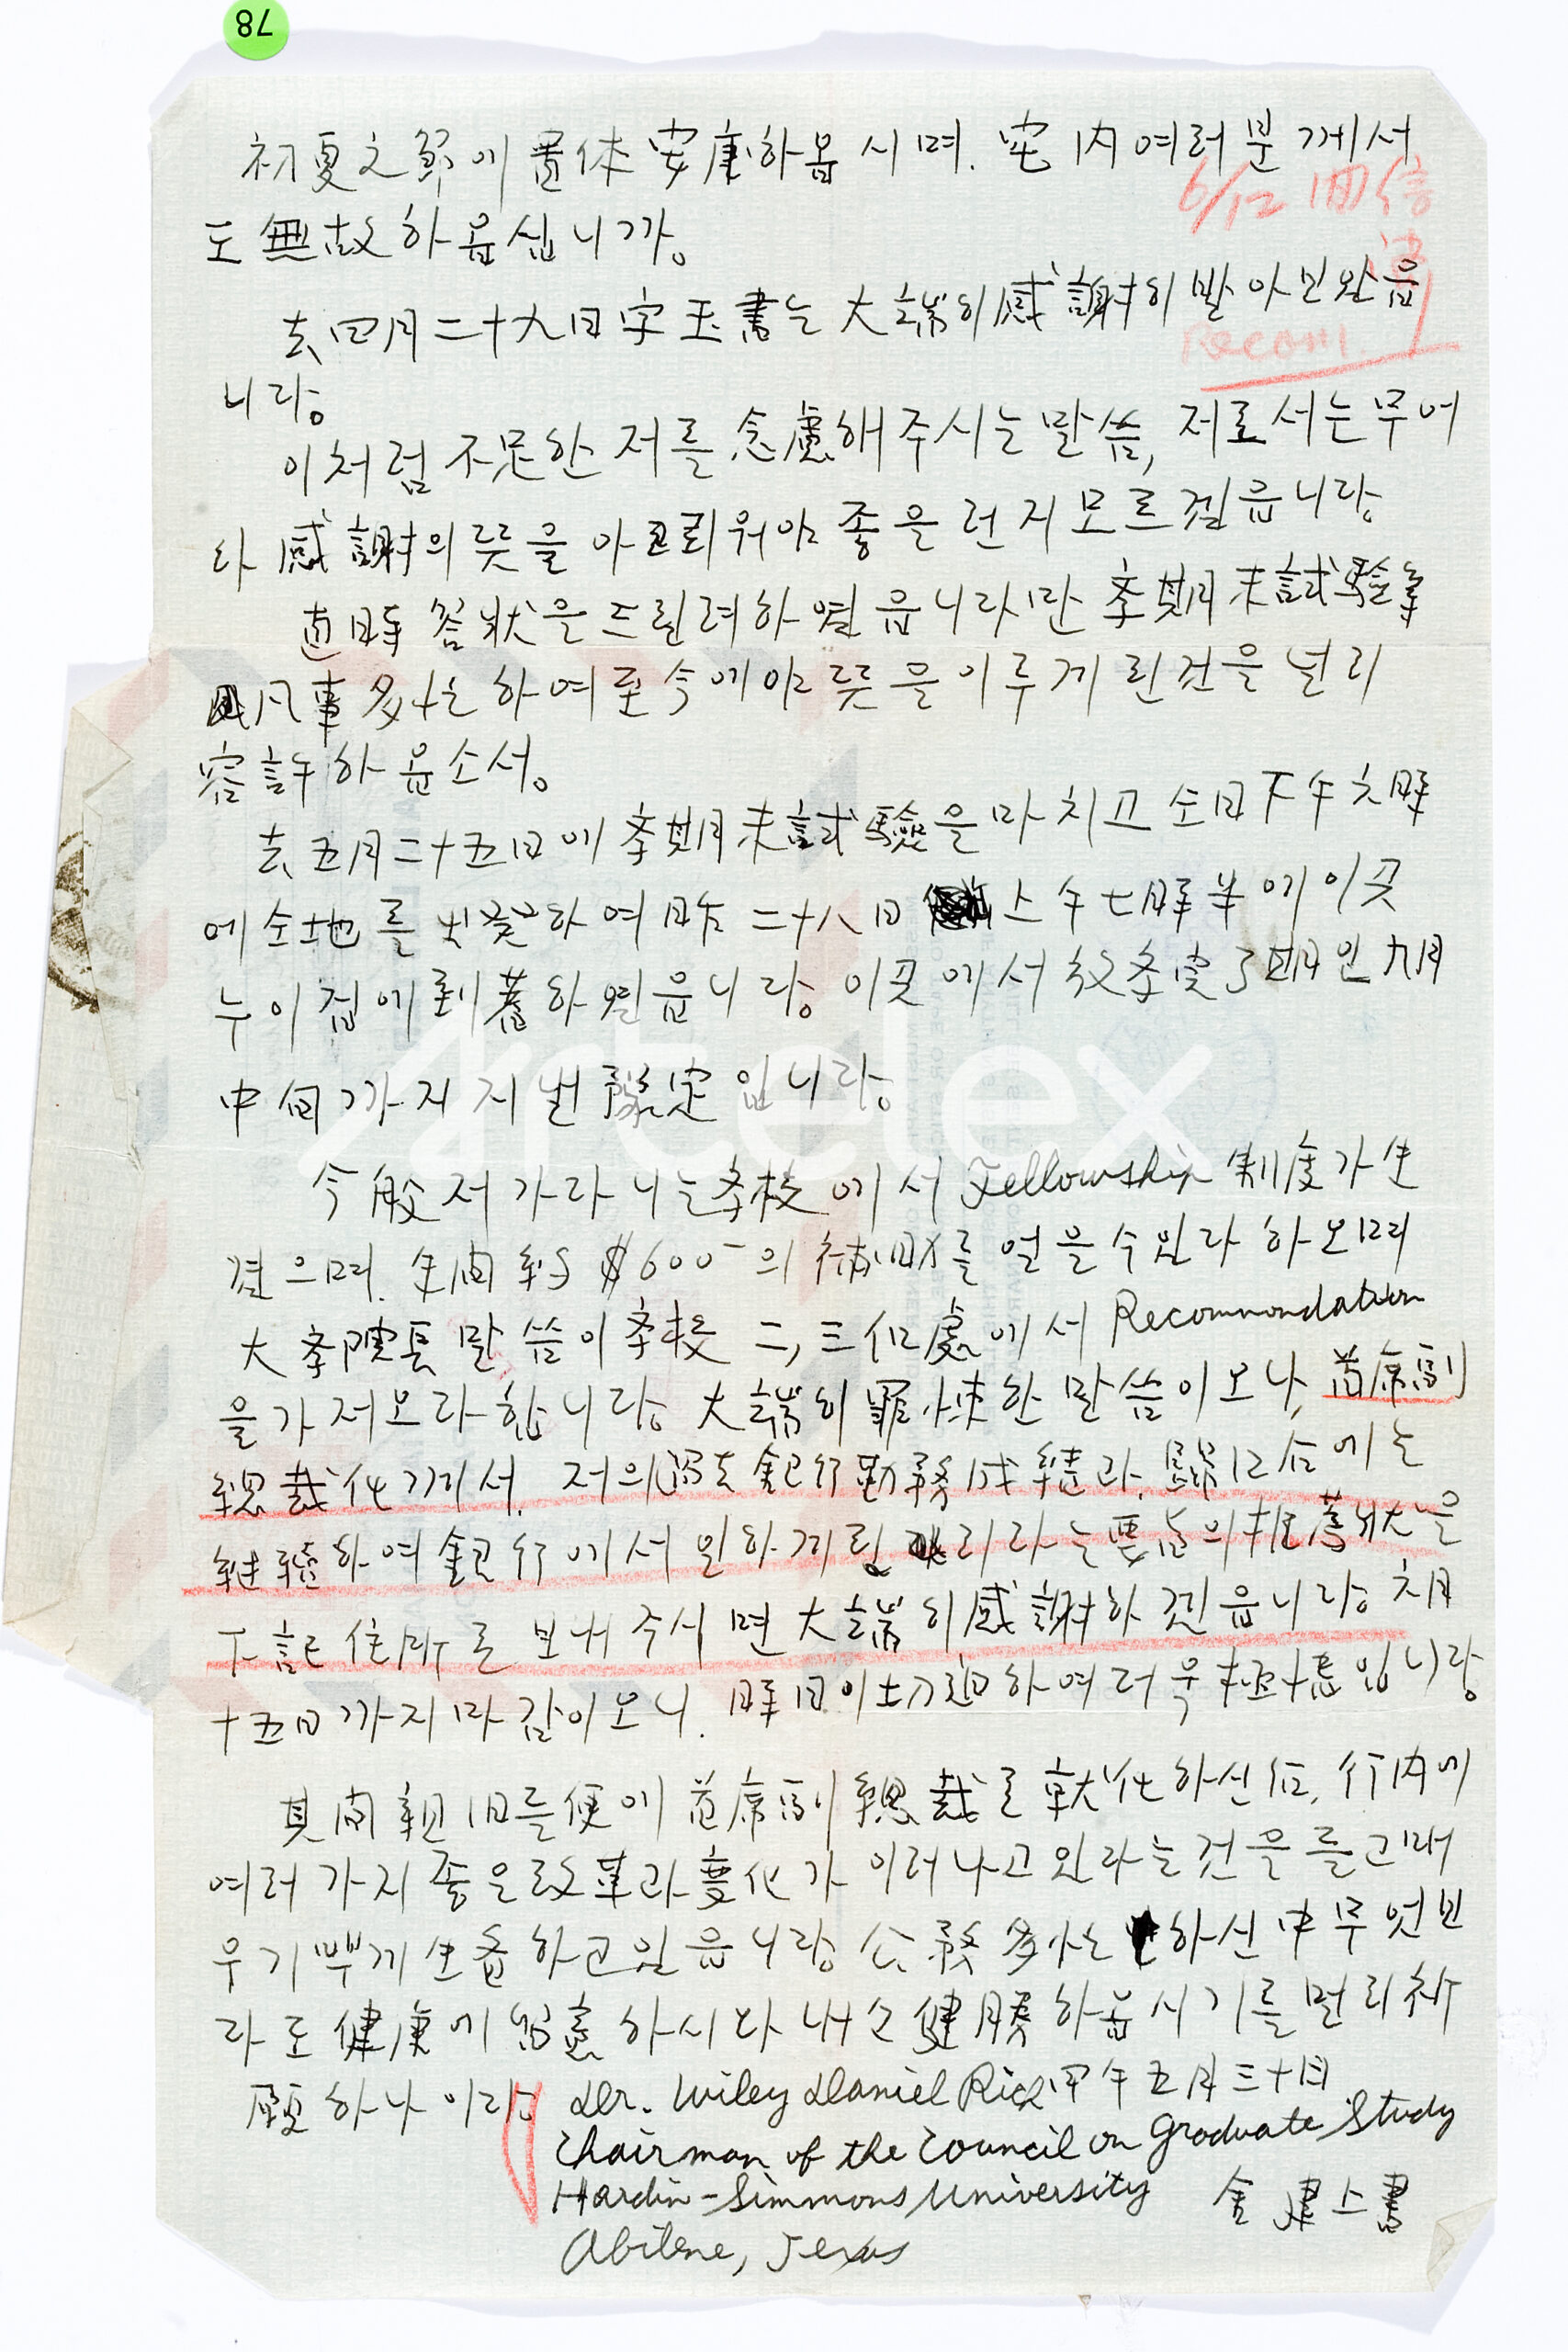 78
初夏之節에 貴体 安康하옵시며. 宅內 여러분께서
6/12 回信
도 無故하옵십니까。
去 四月二十九日字 玉書는 大端히 感謝히 받아보았읍
Recom.
니다。
이처럼 不足한 저를 念慮해 주시는 말씀, 저로서는 무어
라 感謝의 뜻을 아뢰워야 좋을런지 모르겠읍니다。
直時 答狀을 드릴려 하였읍니다만 李期末試驗等
凡事多忙하여 至今에야 뜻을 이루게 된건을 널리
容許하옵소서。
去 五月二十五日에 学期末試驗을 마치고 仝日 下午六時
에 仝地를 出発하여 昨 二十八日 上午七時半에 이곳
누이집에 到着하였읍니다。 이곳에서 放学完了期인 九月
中旬까지 지낼 豫定입니다。
今般 저가 다니는 学校에서 Fellowship 制度가 生
겼으며. 年間 約 $600-의 補助를 얻을 수 있다 하오며
大学院長 말씀이 学校 二, 三個處에서 Recommondation
을 가저오라 합니다。 大端히 罪悚한 말씀이오나, 首席副
總裁任께서. 저의 過去 銀行勤務成績과. 歸国后에는
継續하여 銀行에서 일하게 되리라는 要旨의 推薦狀을
下記 住所로 보내주시면 大端히 感謝하겠읍니다。 六月
十五日까지 마감이오니. 時日이 切迫하여 더욱 極悚입니다
其間 親旧를 便에 首席副總裁로 就任하신 后. 行內에
여러가지 좋은 改革과 変化가 이러나고 있다는 것을 듣고 매
우 기쁘게 生覺하고 있읍니다。 公務多忙하신 中 무엇보
다도 健康에 留意하시와 내내 健勝하옵시기를 멀리 祈
願하나이다。
甲午 五月 三十日
Dr. Wiley Daniel Rich
Chairman of the Council on Graduate Study
Hardin-Simmons University
金建 上書
Abilene, Texas
artelex